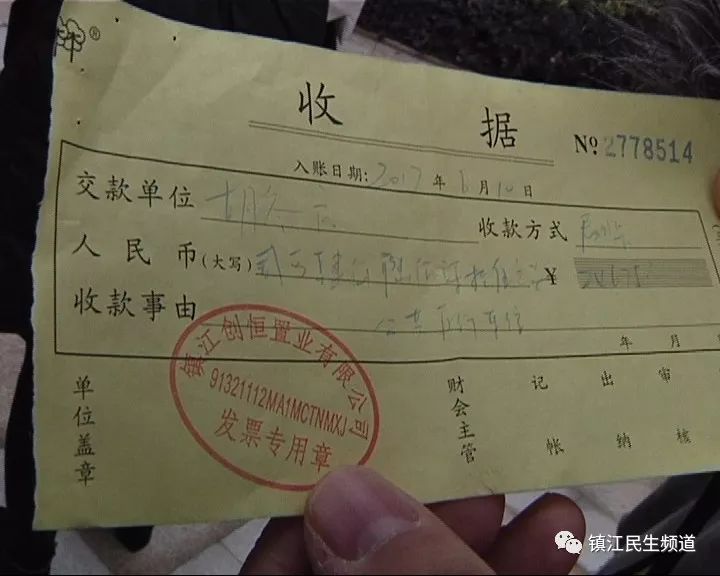 ®
收 据
№ 2778514
入账日期: 2017 年 6 月 10 日
交款单位
收款方式
人民币(大写) ¥
收款事由
年 月
镇江创恒置业有限公司
91321112MA1MCTNMXJ
发票专用章
单位盖章
财会主管
记帐
出纳
审核
镇江民生频道